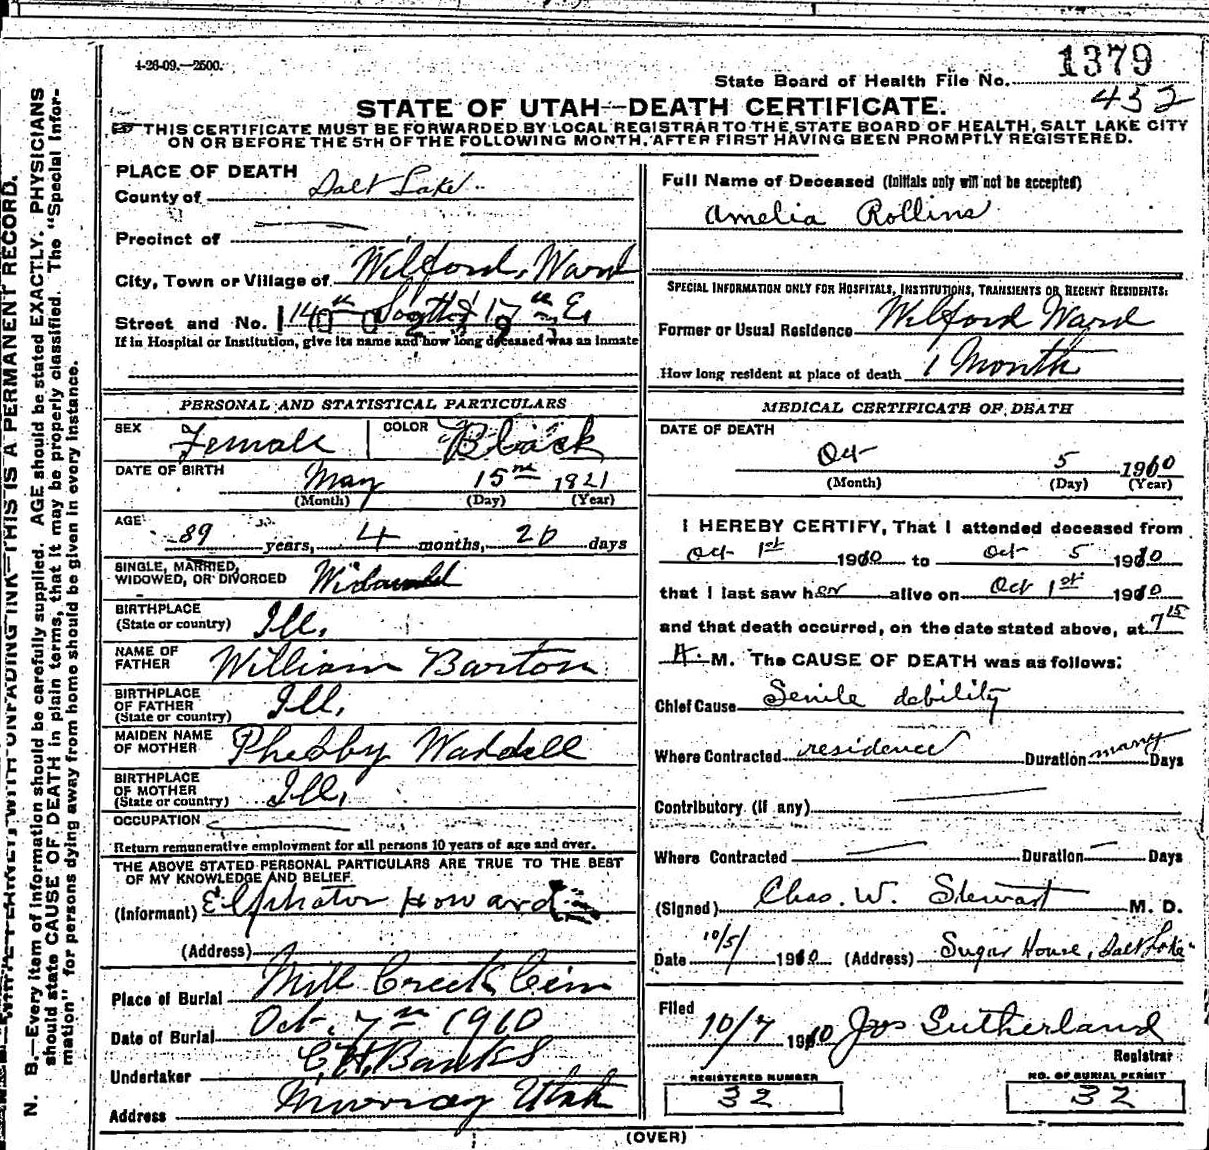 4-26-09.—2500.
State Board of Health File No. 1379
432
STATE OF UTAH—DEATH CERTIFICATE.
THIS CERTIFICATE MUST BE FORWARDED BY LOCAL REGISTRAR TO THE STATE BOARD OF HEALTH, SALT LAKE CITY
ON OR BEFORE THE 5TH OF THE FOLLOWING MONTH, AFTER FIRST HAVING BEEN PROMPTLY REGISTERED.
N. B.—Every item of information should be carefully supplied. AGE should be stated EXACTLY. PHYSICIANS
should state CAUSE OF DEATH in plain terms, that it may be properly classified. The "Special Infor-
mation" for persons dying away from home should be given in every instance.
WITH UNFADING INK—THIS IS A PERMANENT RECORD.
PLACE OF DEATH
County of Salt Lake
Precinct of
City, Town or Village of Wilford Ward
Street and No. 14th South 17th E.
If in Hospital or Institution, give its name and how long deceased was an inmate
PERSONAL AND STATISTICAL PARTICULARS
SEX Female COLOR Black
DATE OF BIRTH May 15 1821
(Month) (Day) (Year)
AGE 89 years, 4 months, 20 days
SINGLE, MARRIED,
WIDOWED, OR DIVORCED Widowed
BIRTHPLACE
(State or country) Ill.
NAME OF
FATHER William Barton
BIRTHPLACE
OF FATHER
(State or country) Ill.
MAIDEN NAME
OF MOTHER Phebby Waddell
BIRTHPLACE
OF MOTHER
(State or country) Ill.
OCCUPATION
Return remunerative employment for all persons 10 years of age and over.
THE ABOVE STATED PERSONAL PARTICULARS ARE TRUE TO THE BEST
OF MY KNOWLEDGE AND BELIEF.
(Informant) Howard
(Address)
Place of Burial Mill Creek Cem
Date of Burial Oct. 7th 1910
Undertaker Banks
Address Murray Utah
Full Name of Deceased (Initials only will not be accepted)
Amelia Rollins
SPECIAL INFORMATION ONLY FOR HOSPITALS, INSTITUTIONS, TRANSIENTS OR RECENT RESIDENTS:
Former or Usual Residence Wilford Ward
How long resident at place of death 1 Month
MEDICAL CERTIFICATE OF DEATH
DATE OF DEATH
Oct 5 1910
(Month) (Day) (Year)
I HEREBY CERTIFY, That I attended deceased from
Oct 1st 1910 to Oct 5 1910
that I last saw her alive on Oct 1st 1910
and that death occurred, on the date stated above, at 7 15
A. M. The CAUSE OF DEATH was as follows:
Chief Cause Senile debility
Where Contracted residence Duration many Days
Contributory (if any)
Where Contracted Duration Days
(Signed) Chas. W. Stewart M. D.
Date 10/5/ 1910 (Address) Sugar House, Salt Lake
Filed
10/7 1910 Jos Sutherland
Registrar
REGISTERED NUMBER
32
NO. OF BURIAL PERMIT
32
(OVER)